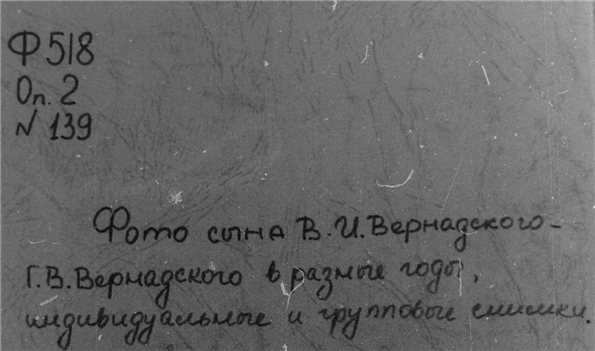 Ф 518
Оп. 2
№ 139
Фото сына В.И.Вернадского-
Г.В.Вернадского в разные годы,
индивидуальные и групповые снимки.